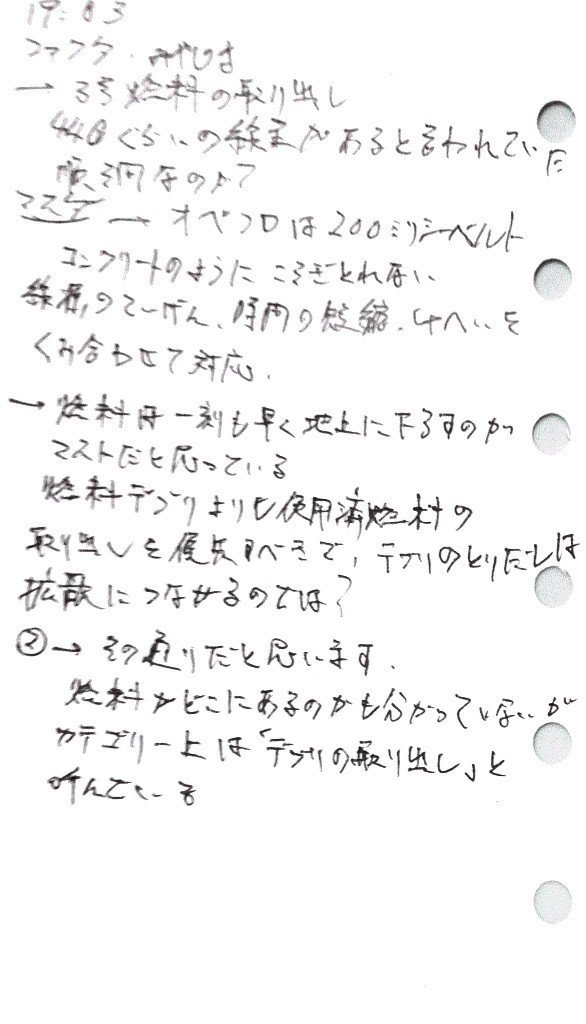 19:03
ファクタ. みやじま
→ 3号燃料の取り出し
440くらいの線量があると言われていた
順調なのか?
マスダ → オペフロは200ミリシーベルト
コンクリートのようにこそぎとれない
線源のていげん、時間の短縮、しゃへいを
くみ合わせて対応.
→ 燃料は一刻も早く地上に下ろすのが
マストだと思っている
燃料デブリよりも使用済燃料の
取り出しを優先すべきで、デブリのとりだしは
拡散につながるのでは?
② → その通りだと思います.
燃料がどこにあるのかも分かっていないが
カテゴリー上は「デブリの取り出し」と
呼んでいる